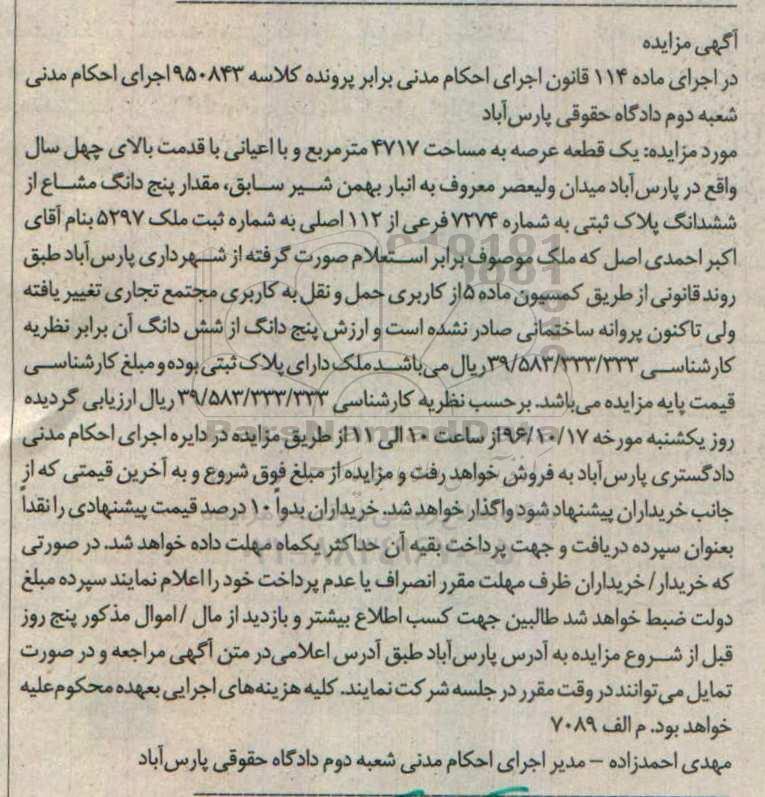 آگهی مزایده
در اجرای ماده ۱۱۴ قانون اجرای احکام مدنی برابر پرونده کلاسه ۹۵۰۸۴۳ اجرای احکام مدنی
شعبه دوم دادگاه حقوقی پارس‌آباد
مورد مزایده: یک قطعه عرصه به مساحت ۴۷۱۷ مترمربع و با اعیانی با قدمت بالای چهل سال
واقع در پارس‌آباد میدان ولیعصر معروف به انبار بهمن شیر سابق، مقدار پنج دانگ مشاع از
ششدانگ پلاک ثبتی به شماره ۷۲۷۴ فرعی از ۱۱۲ اصلی به شماره ثبت ملک ۵۲۹۷ بنام آقای
اکبر احمدی اصل که ملک موصوف برابر استعلام صورت گرفته از شهرداری پارس‌آباد طبق
روند قانونی از طریق کمسیون ماده ۵ از کاربری حمل و نقل به کاربری مجتمع تجاری تغییر یافته
ولی تاکنون پروانه ساختمانی صادر نشده است و ارزش پنج دانگ از شش دانگ آن برابر نظریه
کارشناسی ۳۹/۵۸۳/۳۳۳/۳۳۳ ریال می‌باشد ملک دارای پلاک ثبتی بوده و مبلغ کارشناسی
قیمت پایه مزایده می‌باشد. برحسب نظریه کارشناسی ۳۹/۵۸۳/۳۳۳/۳۳۳ ریال ارزیابی گردیده
روز یکشنبه مورخه ۹۶/۱۰/۱۷ از ساعت ۱۰ الی ۱۱ از طریق مزایده در دایره اجرای احکام مدنی
دادگستری پارس‌آباد به فروش خواهد رفت و مزایده از مبلغ فوق شروع و به آخرین قیمتی که از
جانب خریداران پیشنهاد شود واگذار خواهد شد. خریداران بدواً ۱۰ درصد قیمت پیشنهادی را نقداً
بعنوان سپرده دریافت و جهت پرداخت بقیه آن حداکثر یکماه مهلت داده خواهد شد. در صورتی
که خریدار/ خریداران ظرف مهلت مقرر انصراف یا عدم پرداخت خود را اعلام نمایند سپرده مبلغ
دولت ضبط خواهد شد طالبین جهت کسب اطلاع بیشتر و بازدید از مال / اموال مذکور پنج روز
قبل از شروع مزایده به آدرس پارس‌آباد طبق آدرس اعلامی در متن آگهی مراجعه و در صورت
تمایل می‌توانند در وقت مقرر در جلسه شرکت نمایند. کلیه هزینه‌های اجرایی بعهده محکوم‌علیه
خواهد بود. م الف ۷۰۸۹
مهدی احمدزاده – مدیر اجرای احکام مدنی شعبه دوم دادگاه حقوقی پارس‌آباد